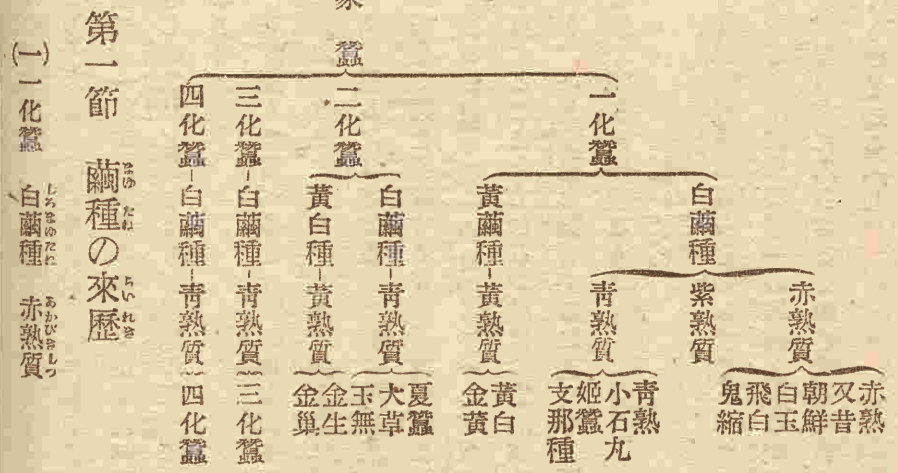 家蠶
一化蠶
白繭種
赤熟質
赤熟
又昔
朝鮮
白玉
飛白
鬼縮
紫熟質
靑熟質
靑熟
小石丸
姬蠶
支那種
黃繭種
黃熟質
黃白
金黃
二化蠶
白繭種
靑熟質
夏蠶
大草
玉無
黃白種
黃熟質
金生
金巢
三化蠶
白繭種
靑熟質
三化蠶
四化蠶
白繭種
靑熟質
四化蠶
第一節 繭種の來歷
まゆ たね らい れき
(一)一化蠶 白繭種 赤熟質
しろまゆたね